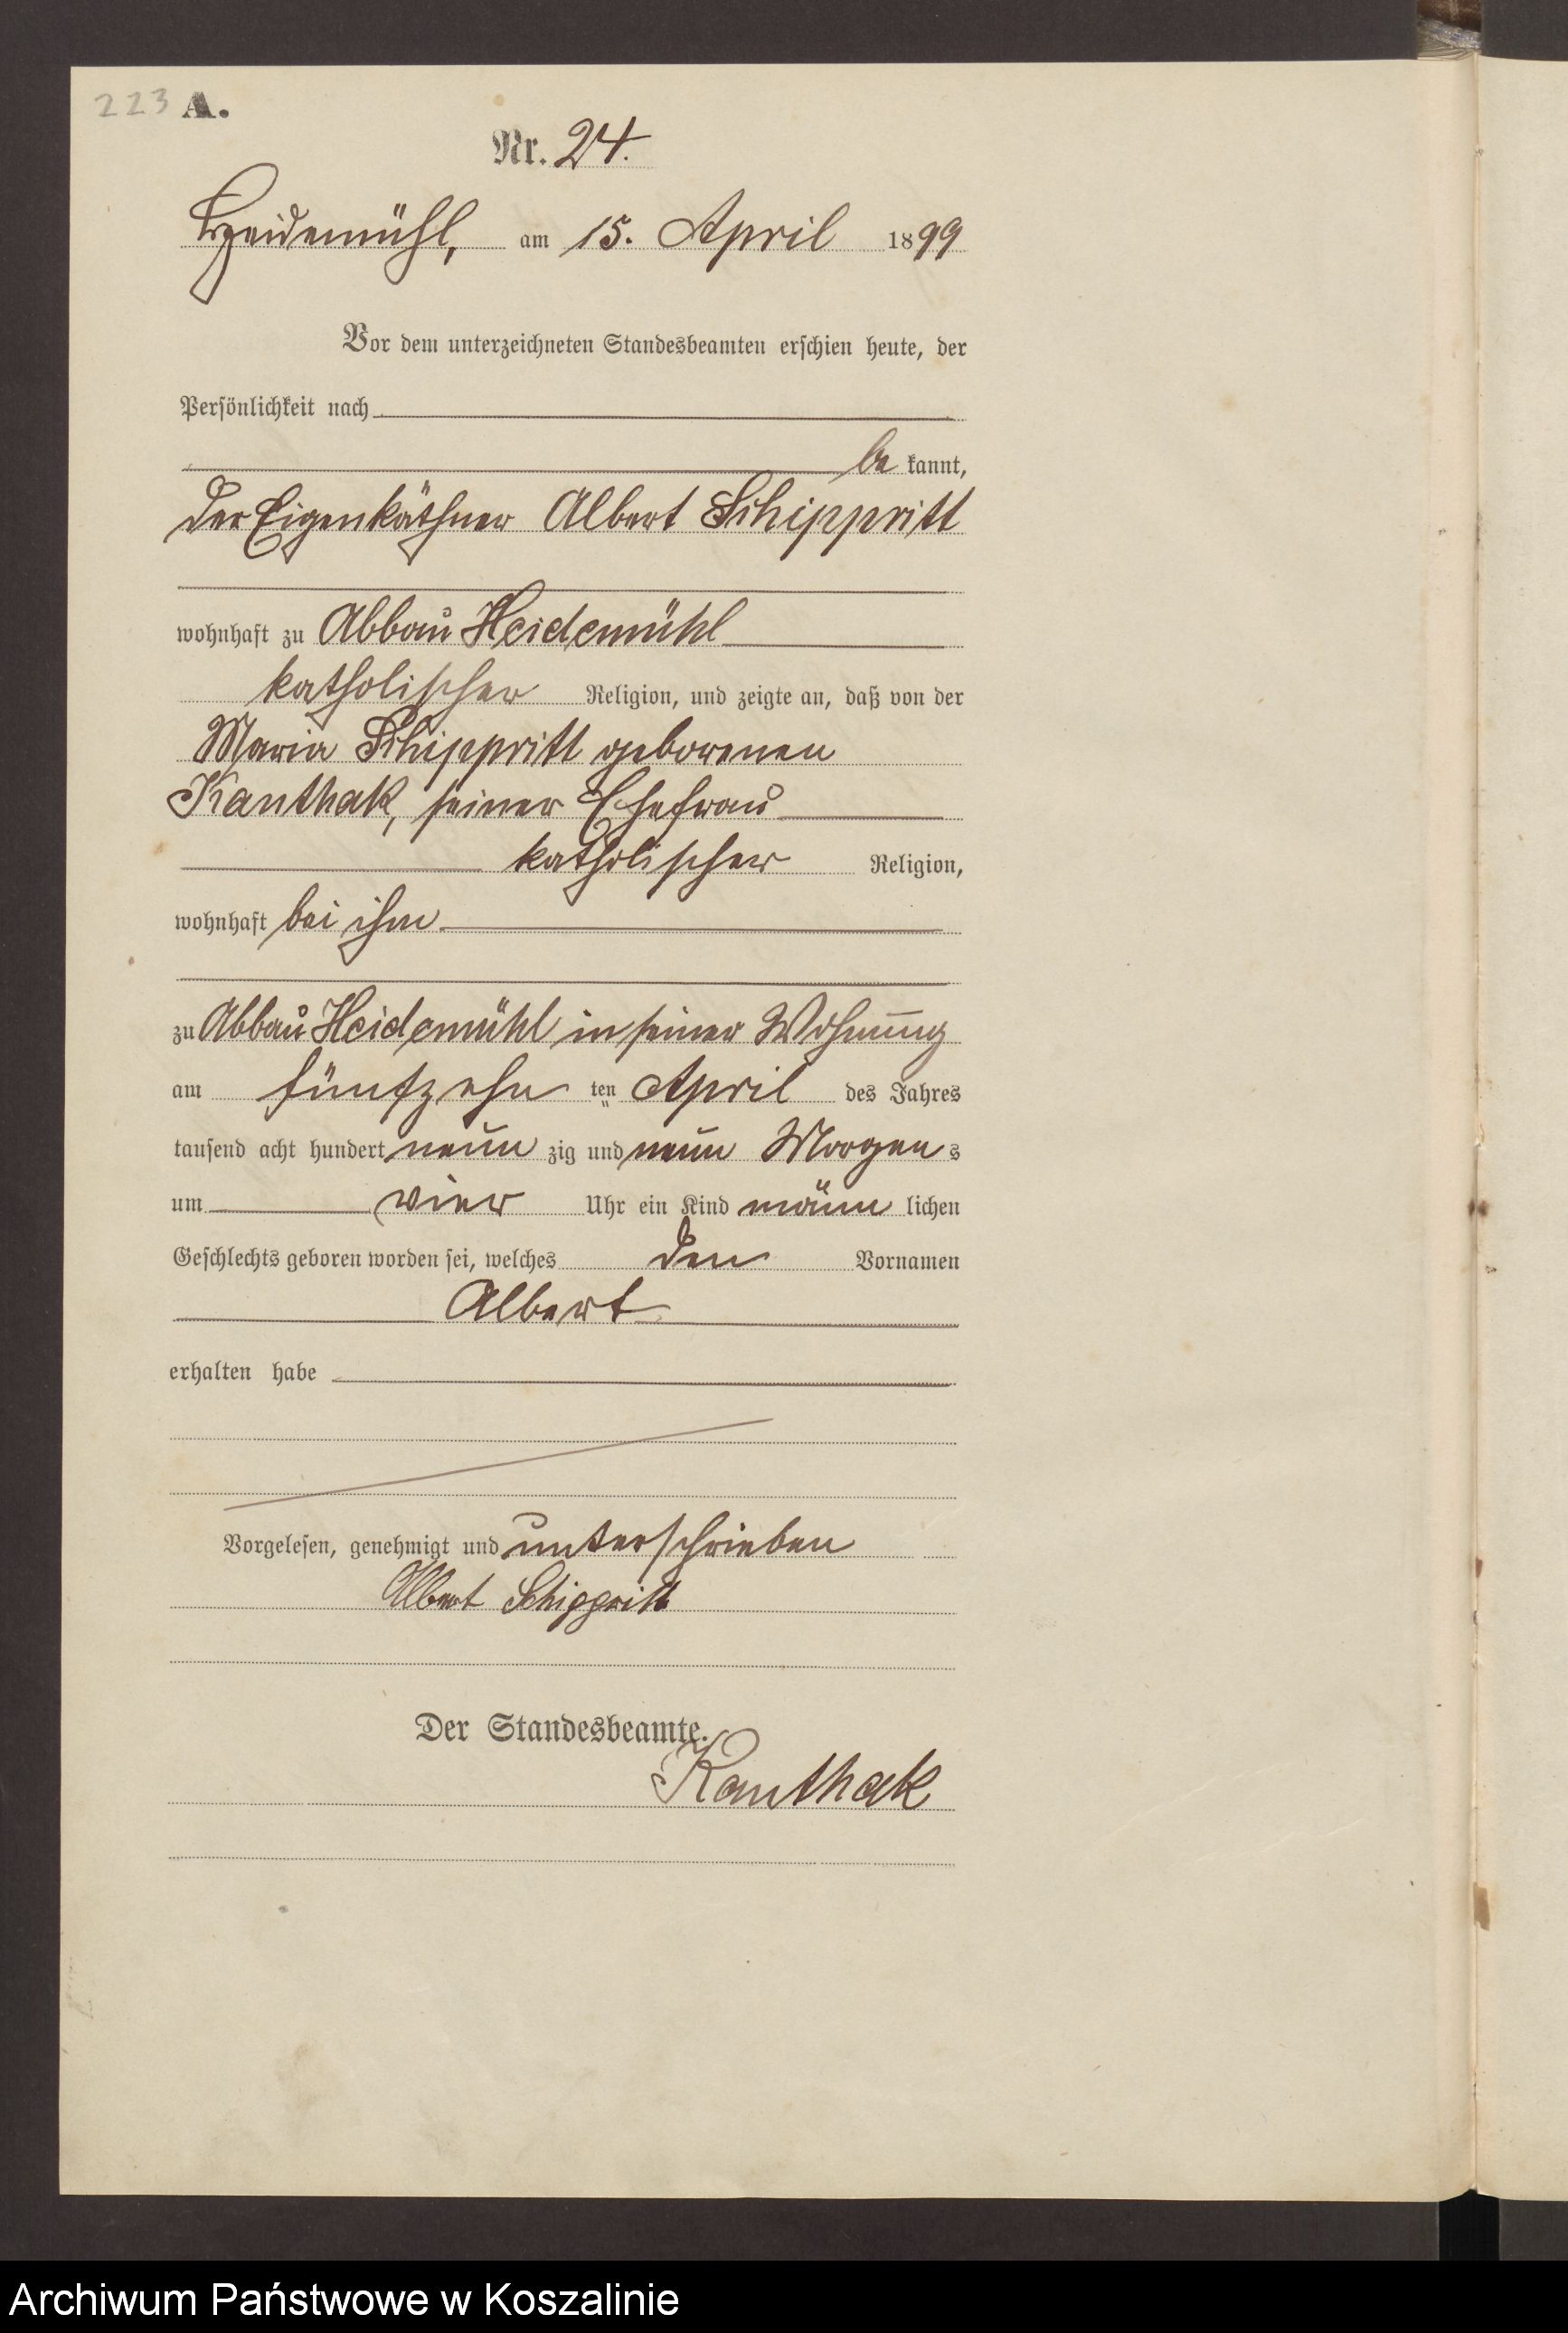 223 A.
Nr. 24.
Heidemühl, am 15. April 1899
Vor dem unterzeichneten Standesbeamten erschien heute, der
Persönlichkeit nach
be kannt,
der Eigenkäthner Albert Schippritt
wohnhaft zu Abbau Heidemühl
katholischer Religion, und zeigte an, daß von der
Maria Schippritt geborenen
Kanthak, seiner Ehefrau
katholischer Religion,
wohnhaft bei ihm
zu Abbau Heidemühl in seiner Wohnung
am fünfzehn ten April des Jahres
tausend acht hundert neun zig und neun Morgen s
um vier Uhr ein Kind männ lichen
Geschlechts geboren worden sei, welches den Vornamen
Albert
erhalten habe
Vorgelesen, genehmigt und unterschrieben
Albert Schippritt
Der Standesbeamte.
Kanthak
Archiwum Państwowe w Koszalinie